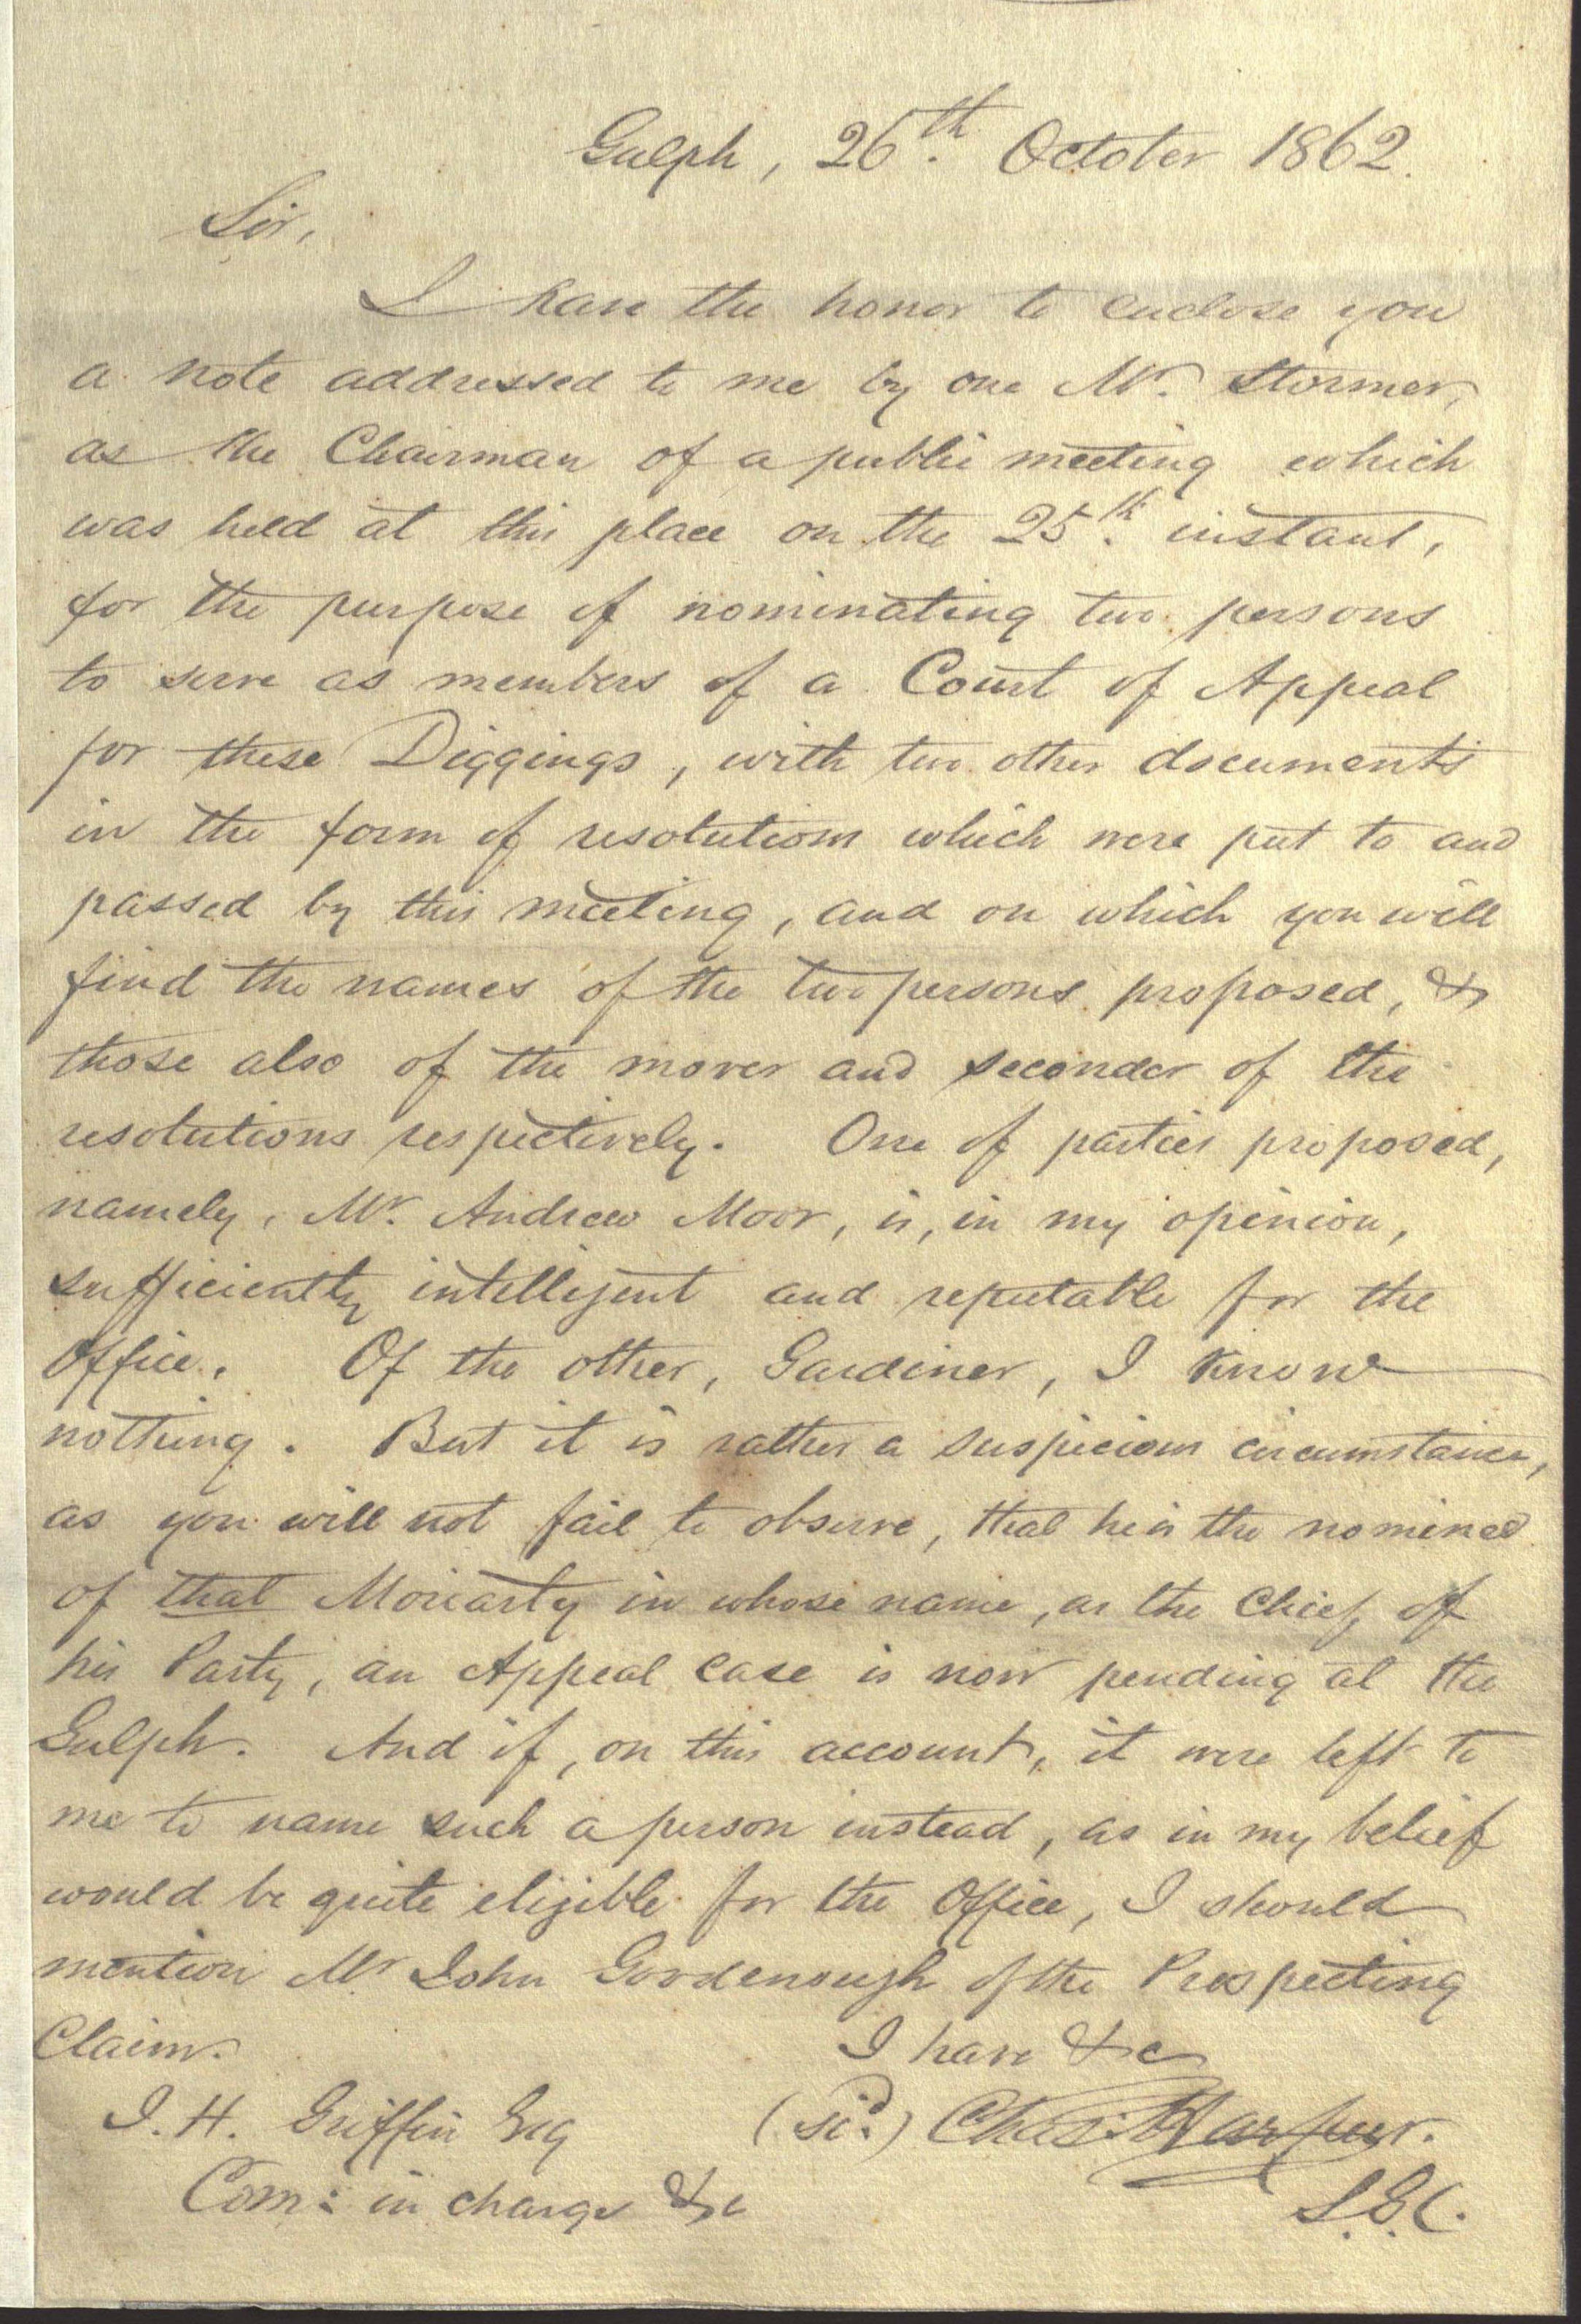 Gulph, 26th. October 1862.
Sir,
I have the honor to enclose you
a note addressed to me by one Mr. Stormer,
as the Chairman of a public meeting which
was held at this place on the 25th. instant,
for the purpose of nominating two persons
to serve as members of a Court of Appeal
for these Diggings, with two other documents
in the form of resolutions which were put to and
passed by this meeting, and on which you will
find the names of the two persons proposed, &
those also of the mover and seconder of the
resolutions respectively. One of parties proposed,
namely, Mr. Andrew Moor, is, in my opinion,
sufficiently intelligent and reputable for the
Office. Of the other, Gardiner, I know
nothing. But it is rather a suspicious circumstance,
as you will not fail to observe, that he is the nominee
of that Moriarty in whose name, as the Chief of
his Party, an Appeal case is now pending at the
Gulph. And if, on this account, it were left to
me to name such a person instead, as in my belief
would be quite eligible for the Office, I should
mention Mr John Goodenough of the Prospecting
Claim.
I have &c
J. H. Griffin Esq
(sid.) Chas. Harpur.
Com: in charge &c
S.G.C.